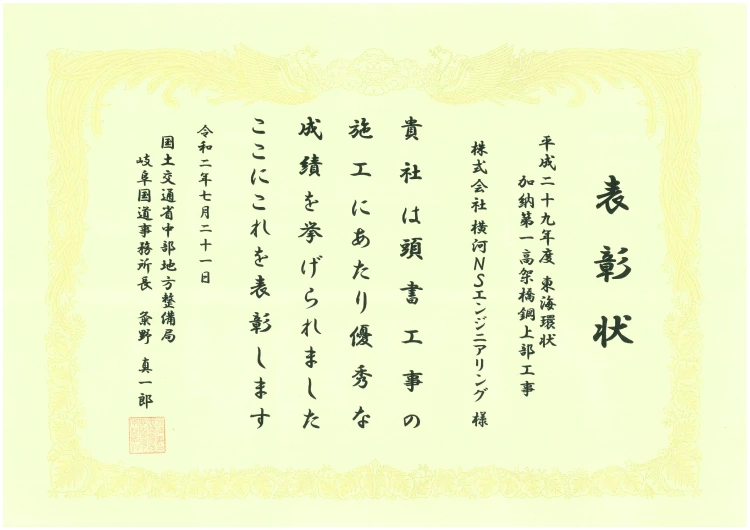 表彰状
平成二十九年度 東海環状
加納第一高架橋鋼上部工事
株式会社 横河NSエンジニアリング 様
貴社は頭書工事の
施工にあたり優秀な
成績を挙げられました
ここにこれを表彰します
令和二年七月二十一日
国土交通省中部地方整備局
岐阜国道事務所長 粂野 真一郎